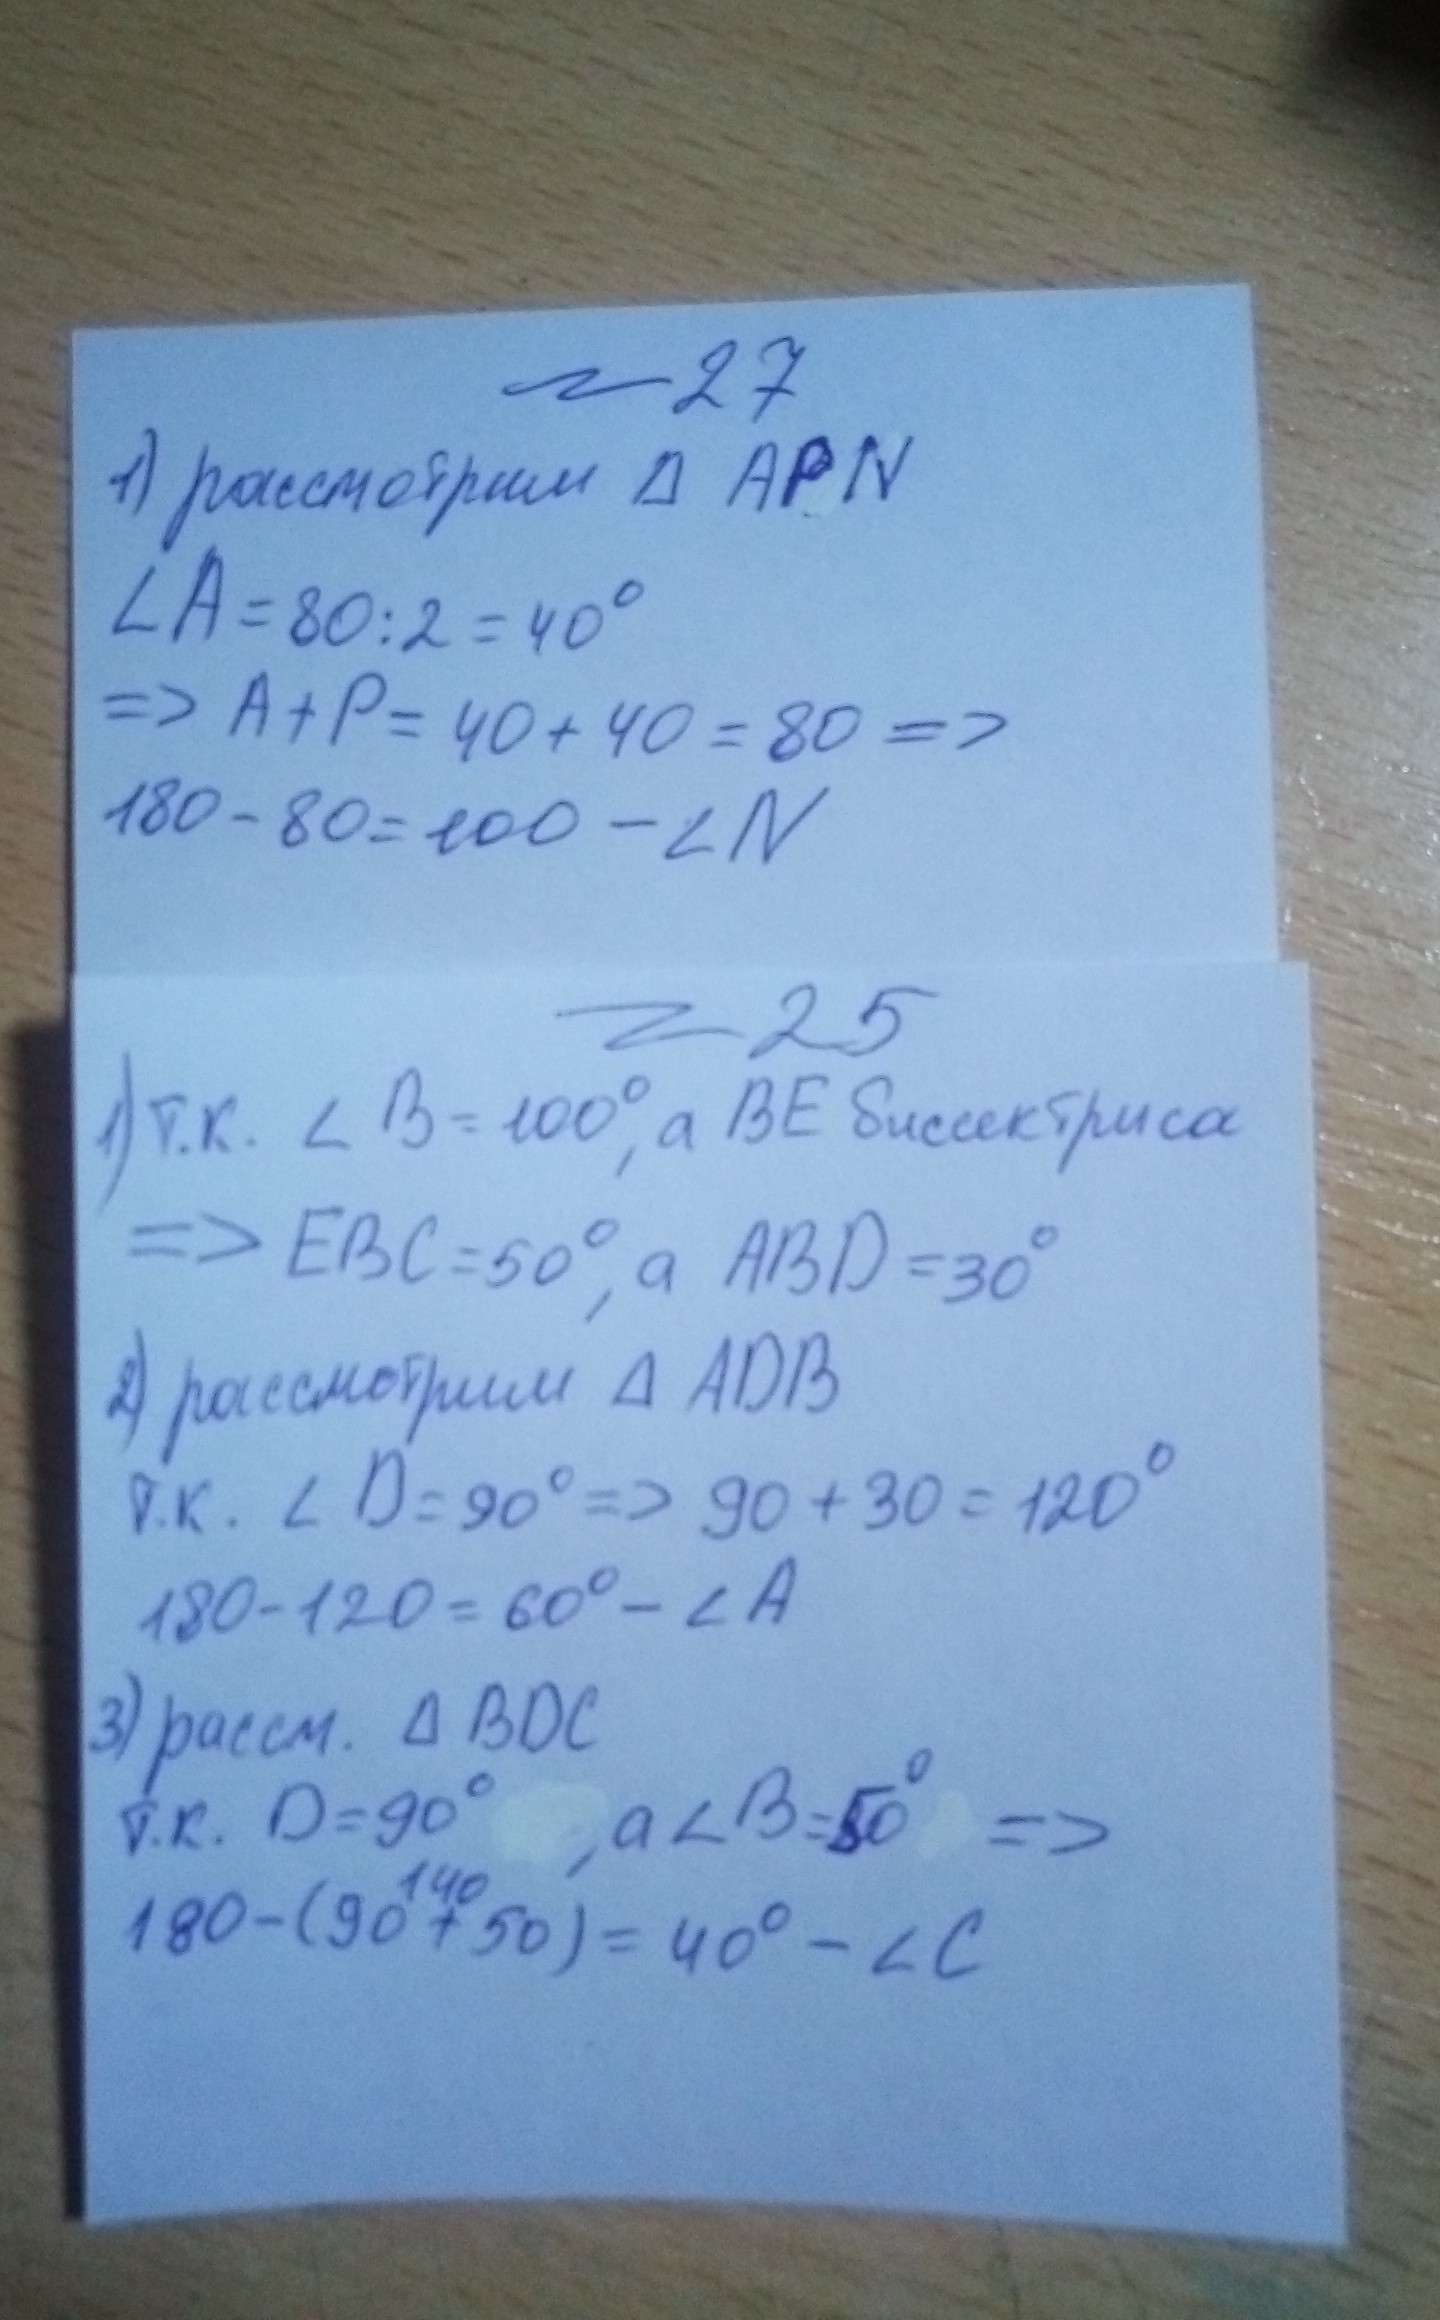 ~27
1) рассмотрим Δ APN
∠A = 80:2 = 40°
=> A+P = 40+40 = 80 =>
180-80 = 100 - ∠N
~25
1) т.к. ∠B = 100°, а BE биссектриса
=> EBC = 50°, а ABD = 30°
2) рассмотрим Δ ADB
т.к. ∠D = 90° => 90 + 30 = 120°
180-120 = 60° - ∠A
3) рассм. Δ BDC
т.к. D = 90° , а ∠B = 50° =>
140
180-(90+50) = 40° - ∠C